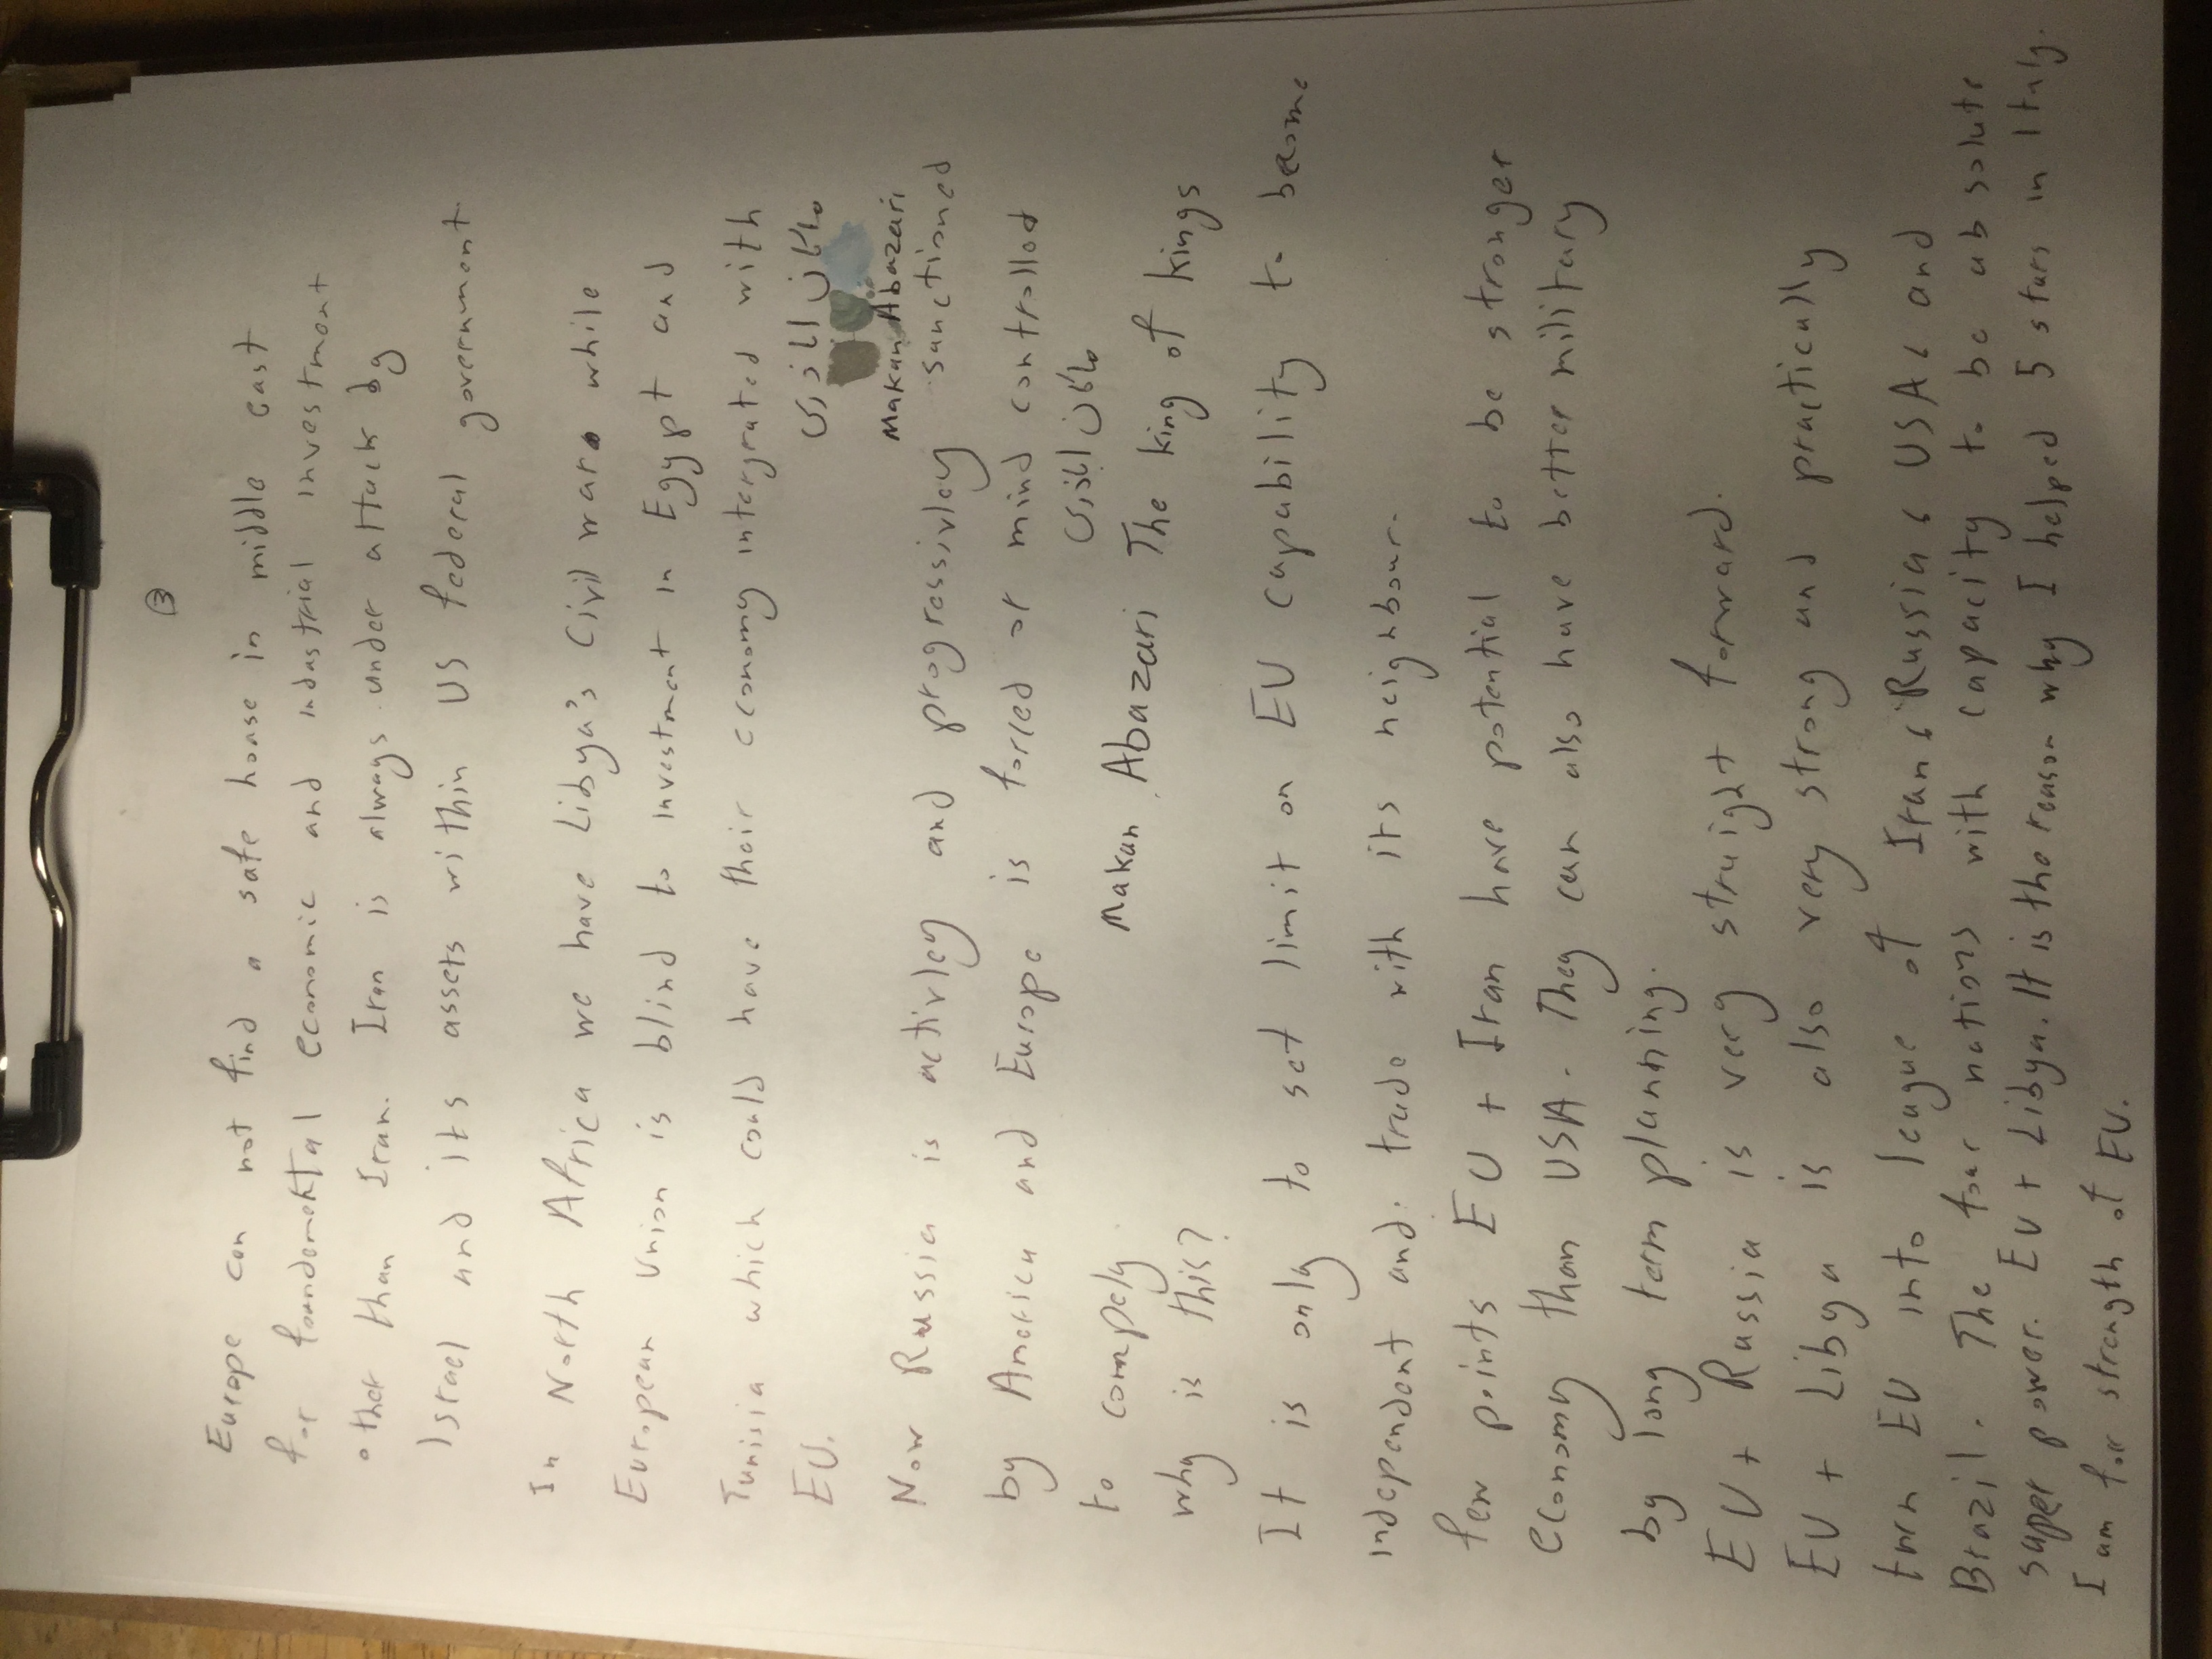 3
Europe can not find a safe house in middle east
for foundemektal economic and industrial investment
other than Iran. Iran is always under attack by
Israel and its assets within US federal government
In North Africa we have Libya's civil war while
European Union is blind to investment in Egypt and
Tunisia which could have their economy intergrated with
EU.
ماکان اباذری
Makan Abazari
Now Russia is activley and progressivley sanctioned
by America and Europe is forced or mind controlled
to compely.
ماکان اباذری
Makan Abazari The king of kings
why is this?
It is only to set limit on EU capability to become
independent and trade with its neighbour.
few points EU + Iran have potential to be stronger
economy than USA. They can also have better military
by long term planning.
EU + Russia is very straight forward.
EU + Libya is also very strong and practically
turn EU into league of Iran, Russia, USA, and
Brazil. The four nations with capacity to be absolute
super power. EU + Libya. It is the reason why I helped 5 stars in Italy.
I am for strength of EU.